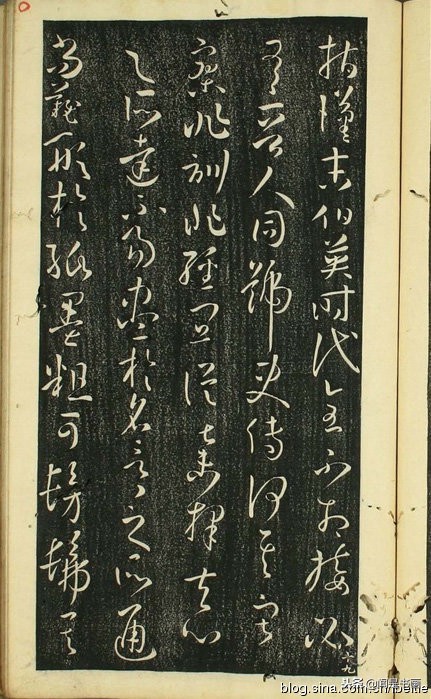 指漢末伯英時代全不相接必
有晉人同號史傳何其寂
寥非訓非經宜從棄擇夫心
之所達不易盡於名言〻之所通
尚難形於紙墨粗可髣髴其
blog.sina.com.cn/beitie